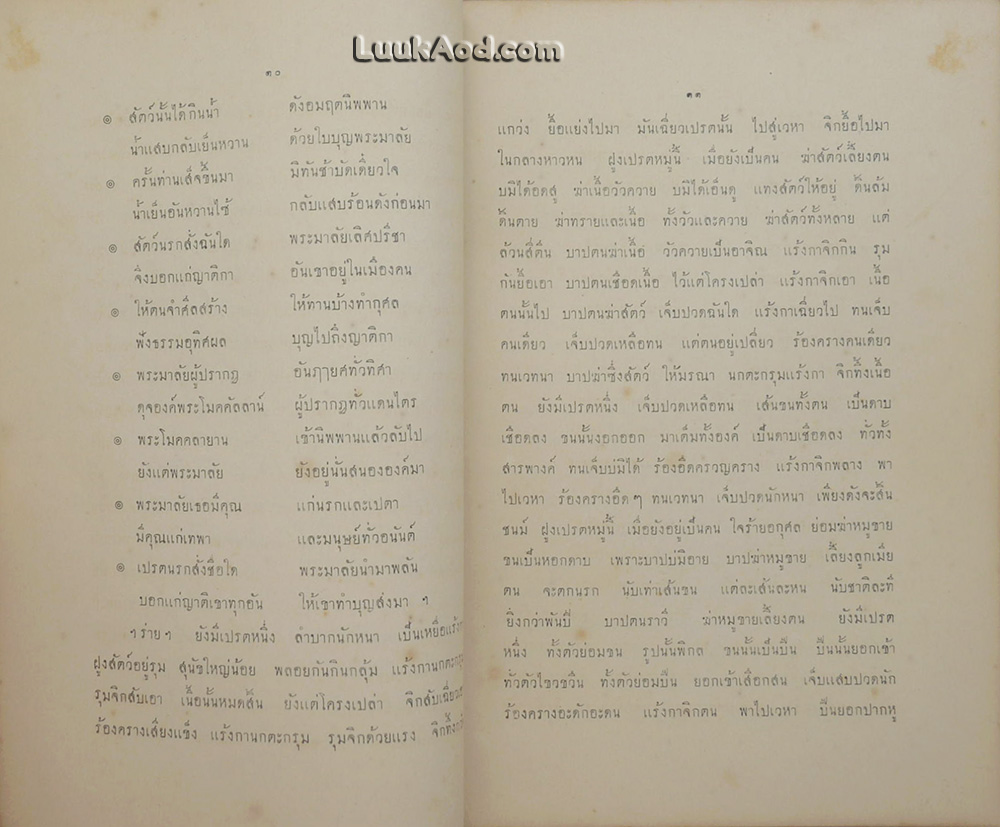 LuukAod.com
๑๐
๏ สัตว์นั้นได้กินน้ำ ดังอมฤตนิพพาน
น้ำแสบกลับเย็นหวาน ด้วยใบบุญพระมาลัย
๏ ครั้นท่านเส็จขึ้นมา มิทันช้าบัดเดี๋ยวใจ
น้ำเย็นอันหวานไซ้ กลับแสบร้อนดังก่อนมา
๏ สัตว์นรกสั่งฉันใด พระมาลัยเลิศปรีชา
จึงบอกแก่ญาติกา อันเขาอยู่ในเมืองคน
๏ ให้ตนจำศีลสร้าง ให้ทานบ้างทำกุศล
ฟังธรรมอุทิศผล บุญไปถึงญาติกา
๏ พระมาลัยผู้ปรากฏ อันฦๅยศทั่วทิศา
ดุจองค์พระโมคคัลลาน์ ผู้ปรากฏทั่วแดนไตร
๏ พระโมคคลายาน เข้านิพพานแล้วลับไป
ยังแต่พระมาลัย ยังอยู่นั้นสนององค์มา
๏ พระมาลัยเธอมีคุณ แก่นรกและเปตา
มีคุณแก่เทพา และมนุษย์ทั่วอนันต์
๏ เปรตนรกสั่งชื่อใด พระมาลัยนำมาพลัน
บอกแก่ญาติเขาทุกอัน ให้เขาทำบุญส่งมา ฯ
ฯ ร่าย ฯ ยังมีเปรตหนึ่ง ลำบากนักหนา เป็นเหยื่อแร้งกา
ฝูงสัตว์อยู่รุม สุนัขใหญ่น้อย พลอยกันกินกลุ้ม แร้งกานกตะกรุม
รุมจิกสับเอา เนื้อนั้นหมดสิ้น ยังแต่โครงเปล่า จิกสับเฉี่ยวเอา
ร้องครางเสียงแข็ง แร้งกานกตะกรุม รุมจิกด้วยแรง จิกทึ้ง
๑๑
แกว่ง ยื้อแย่งไปมา มันเฉี่ยวเปรตนั้น ไปสู่เวหา จิกยื้อไปมา
ในกลางหาวหน ฝูงเปรตหมู่นี้ เมื่อยังเป็นคน ฆ่าสัตว์เลี้ยงตน
บมิได้อดสู ฆ่าเนื้อวัวควาย บมิได้เอ็นดู แทงสัตว์ให้อยู่ ดิ้นล้ม
ดิ้นตาย ฆ่าทรายและเนื้อ ทั้งวัวและควาย ฆ่าสัตว์ทั้งหลาย แต่
ล้วนสี่ตีน บาปตนฆ่าเนื้อ วัวควายเป็นอาจิณ แร้งกาจิกกิน รุม
กันยื้อเอา บาปตนเชือดเนื้อ ไว้แต่โครงเปล่า แร้งกาจิกเอา เนื้อ
ตนนั้นไป บาปตนฆ่าสัตว์ เจ็บปวดฉันใด แร้งกาเฉี่ยวไป ทนเจ็บ
คนเดียว เจ็บปวดเหลือทน แต่ตนอยู่เปลี่ยว ร้องครางคนเดียว
ทนเวทนา บาปฆ่าซึ่งสัตว์ ให้มรณา นกตะกรุมแร้งกา จิกทึ้งเนื้อ
ตน ยังมีเปรตหนึ่ง เจ็บปวดเหลือทน เส้นขนทั้งตน เป็นดาบ
เชือดลง ขนนั้นงอกออก มาเต็มทั้งองค์ เป็นดาบเชือดลง ทั่วทั้ง
สารพางค์ ทนเจ็บบ่มิได้ ร้องอืดครวญคราง แร้งกาจิกพลาง พา
ไปเวหา ร้องครางอืดๆ ทนเวทนา เจ็บปวดนักหนา เพียงดังจะสิ้น
ชนม์ ฝูงเปรตหมู่นี้ เมื่อยังอยู่เป็นคน ใจร้ายอกุศล ย่อมฆ่าหมูขาย
ขนเป็นหอกดาบ เพราะบาปบ่มิอาย บาปฆ่าหมูขาย เลี้ยงลูกเมีย
ตน จะตกนรก นับเท่าเส้นขน แต่ละเส้นละหน นับชาติละที
ยิ่งกว่าพันปี บาปตนราวี ฆ่าหมูขายเลี้ยงตน ยังมีเปรต
หนึ่ง ทั้งตัวย่อมขน รูปนั้นพิกล ขนนั้นเป็นปืน ปืนนั้นยอกเข้า
ทั่วตัวไขวขวิน ทั้งตัวย่อมปืน ยอกเข้าเสือกสน เจ็บแสบปวดนัก
ร้องครางอะดักอะดน แร้งกาจิกตน พาไปเวหา ปืนยอกปากหู